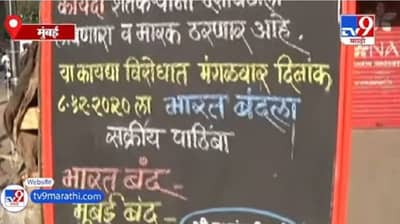 मुंबई
कायदा शेतकऱ्यांना देशोधडीला
लावणारा व मारक ठरणार आहे.
या कायद्या विरोधात मंगळवार दिनांक
८-१२-२०२० ला भारत बंदला
सक्रीय पाठिंबा
भारत बंद-
मुंबई बंद-
TV9
मराठी
Website
tv9marathi.com